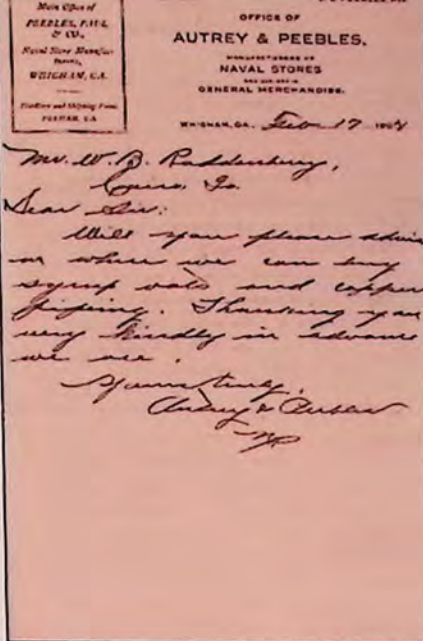 Main Office of
PEEBLES, PAUL
& CO.,
Naval Store Manufac-
turers,
WHIGHAM, GA.
Postoffice and Shipping Point
PELHAM, GA
OFFICE OF
AUTREY & PEEBLES,
MANUFACTURERS OF
NAVAL STORES
AND DEALERS IN
GENERAL MERCHANDISE.
WHIGHAM, GA. Feb 17 190
Mr. W. B. Roddenbery,
Cairo, Ga.
Dear Sir:
Will you please advise
us where we can buy
syrup vats and copper
piping. Thanking you
very kindly in advance
we are,
Yours truly,
Autrey & Peebles
P